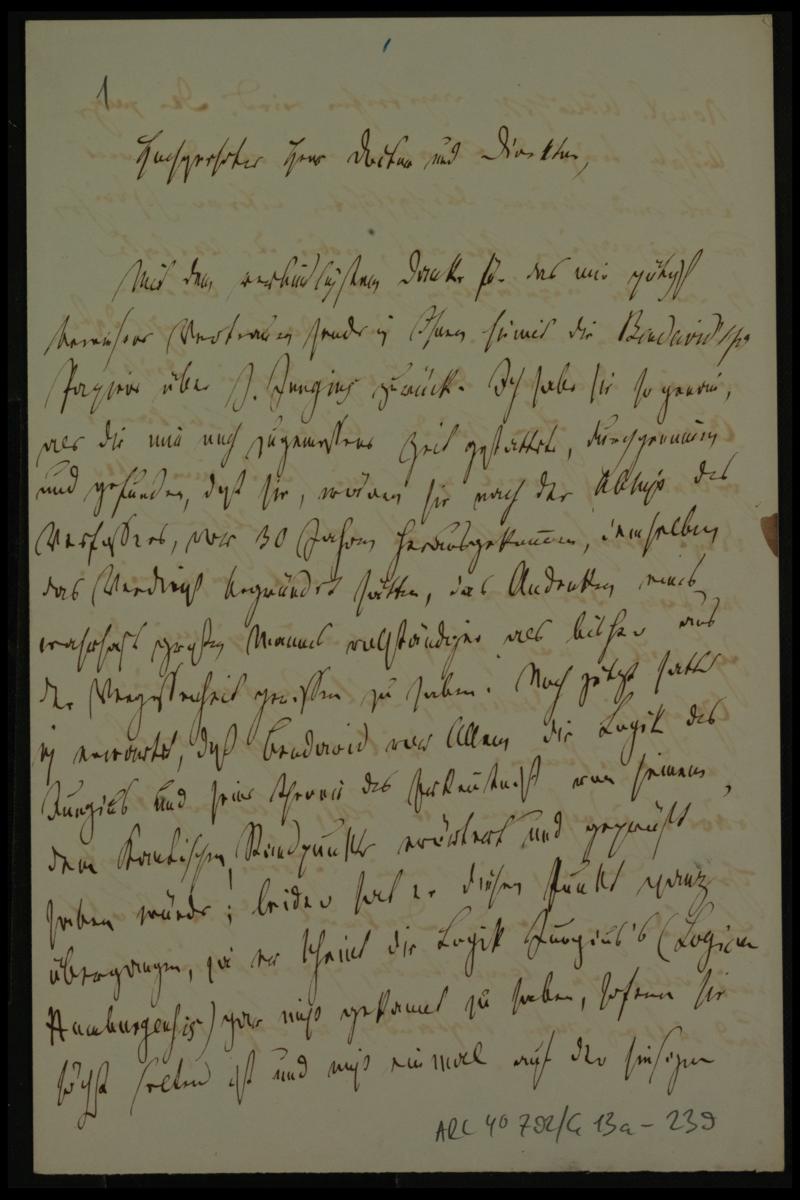 1
Hochgeehrter Herr Doctor und Direktor,
Mit dem verbindlichsten Danke für das mir gütigst
bewiesene Vertrauen sende ich Ihnen hiemit die Bendavid'schen
Papiere über J. Jungius zurück. Ich habe sie so genau,
als die mir noch zugemessene Zeit gestattete, durchgenommen
und gefunden, daß sie, wären sie nach der Absicht des
Verfassers, vor 30 Jahren herausgekommen, demselben
das Verdienst begründet hätten, das Andenken eines
wahrhaft großen Mannes vollständiger als bisher aus
der Vergessenheit gerissen zu haben. Noch jetzt hatte
ich erwartet, daß Bendavid vor Allem die Logik des
Jungius und seine Theorie des Erkenntniß von seinem,
dem Kantischen, Standpunkte erörtert und geprüft
haben würde; leider hat er diesen Punkt ganz
übergangen, ja er scheint die Logik Jungius's (Logica
Hamburgensis) gar nicht gekannt zu haben, sofern sie
höchst selten ist und nicht einmal auf der hiesigen
ARC 4° 792/G 13a - 239